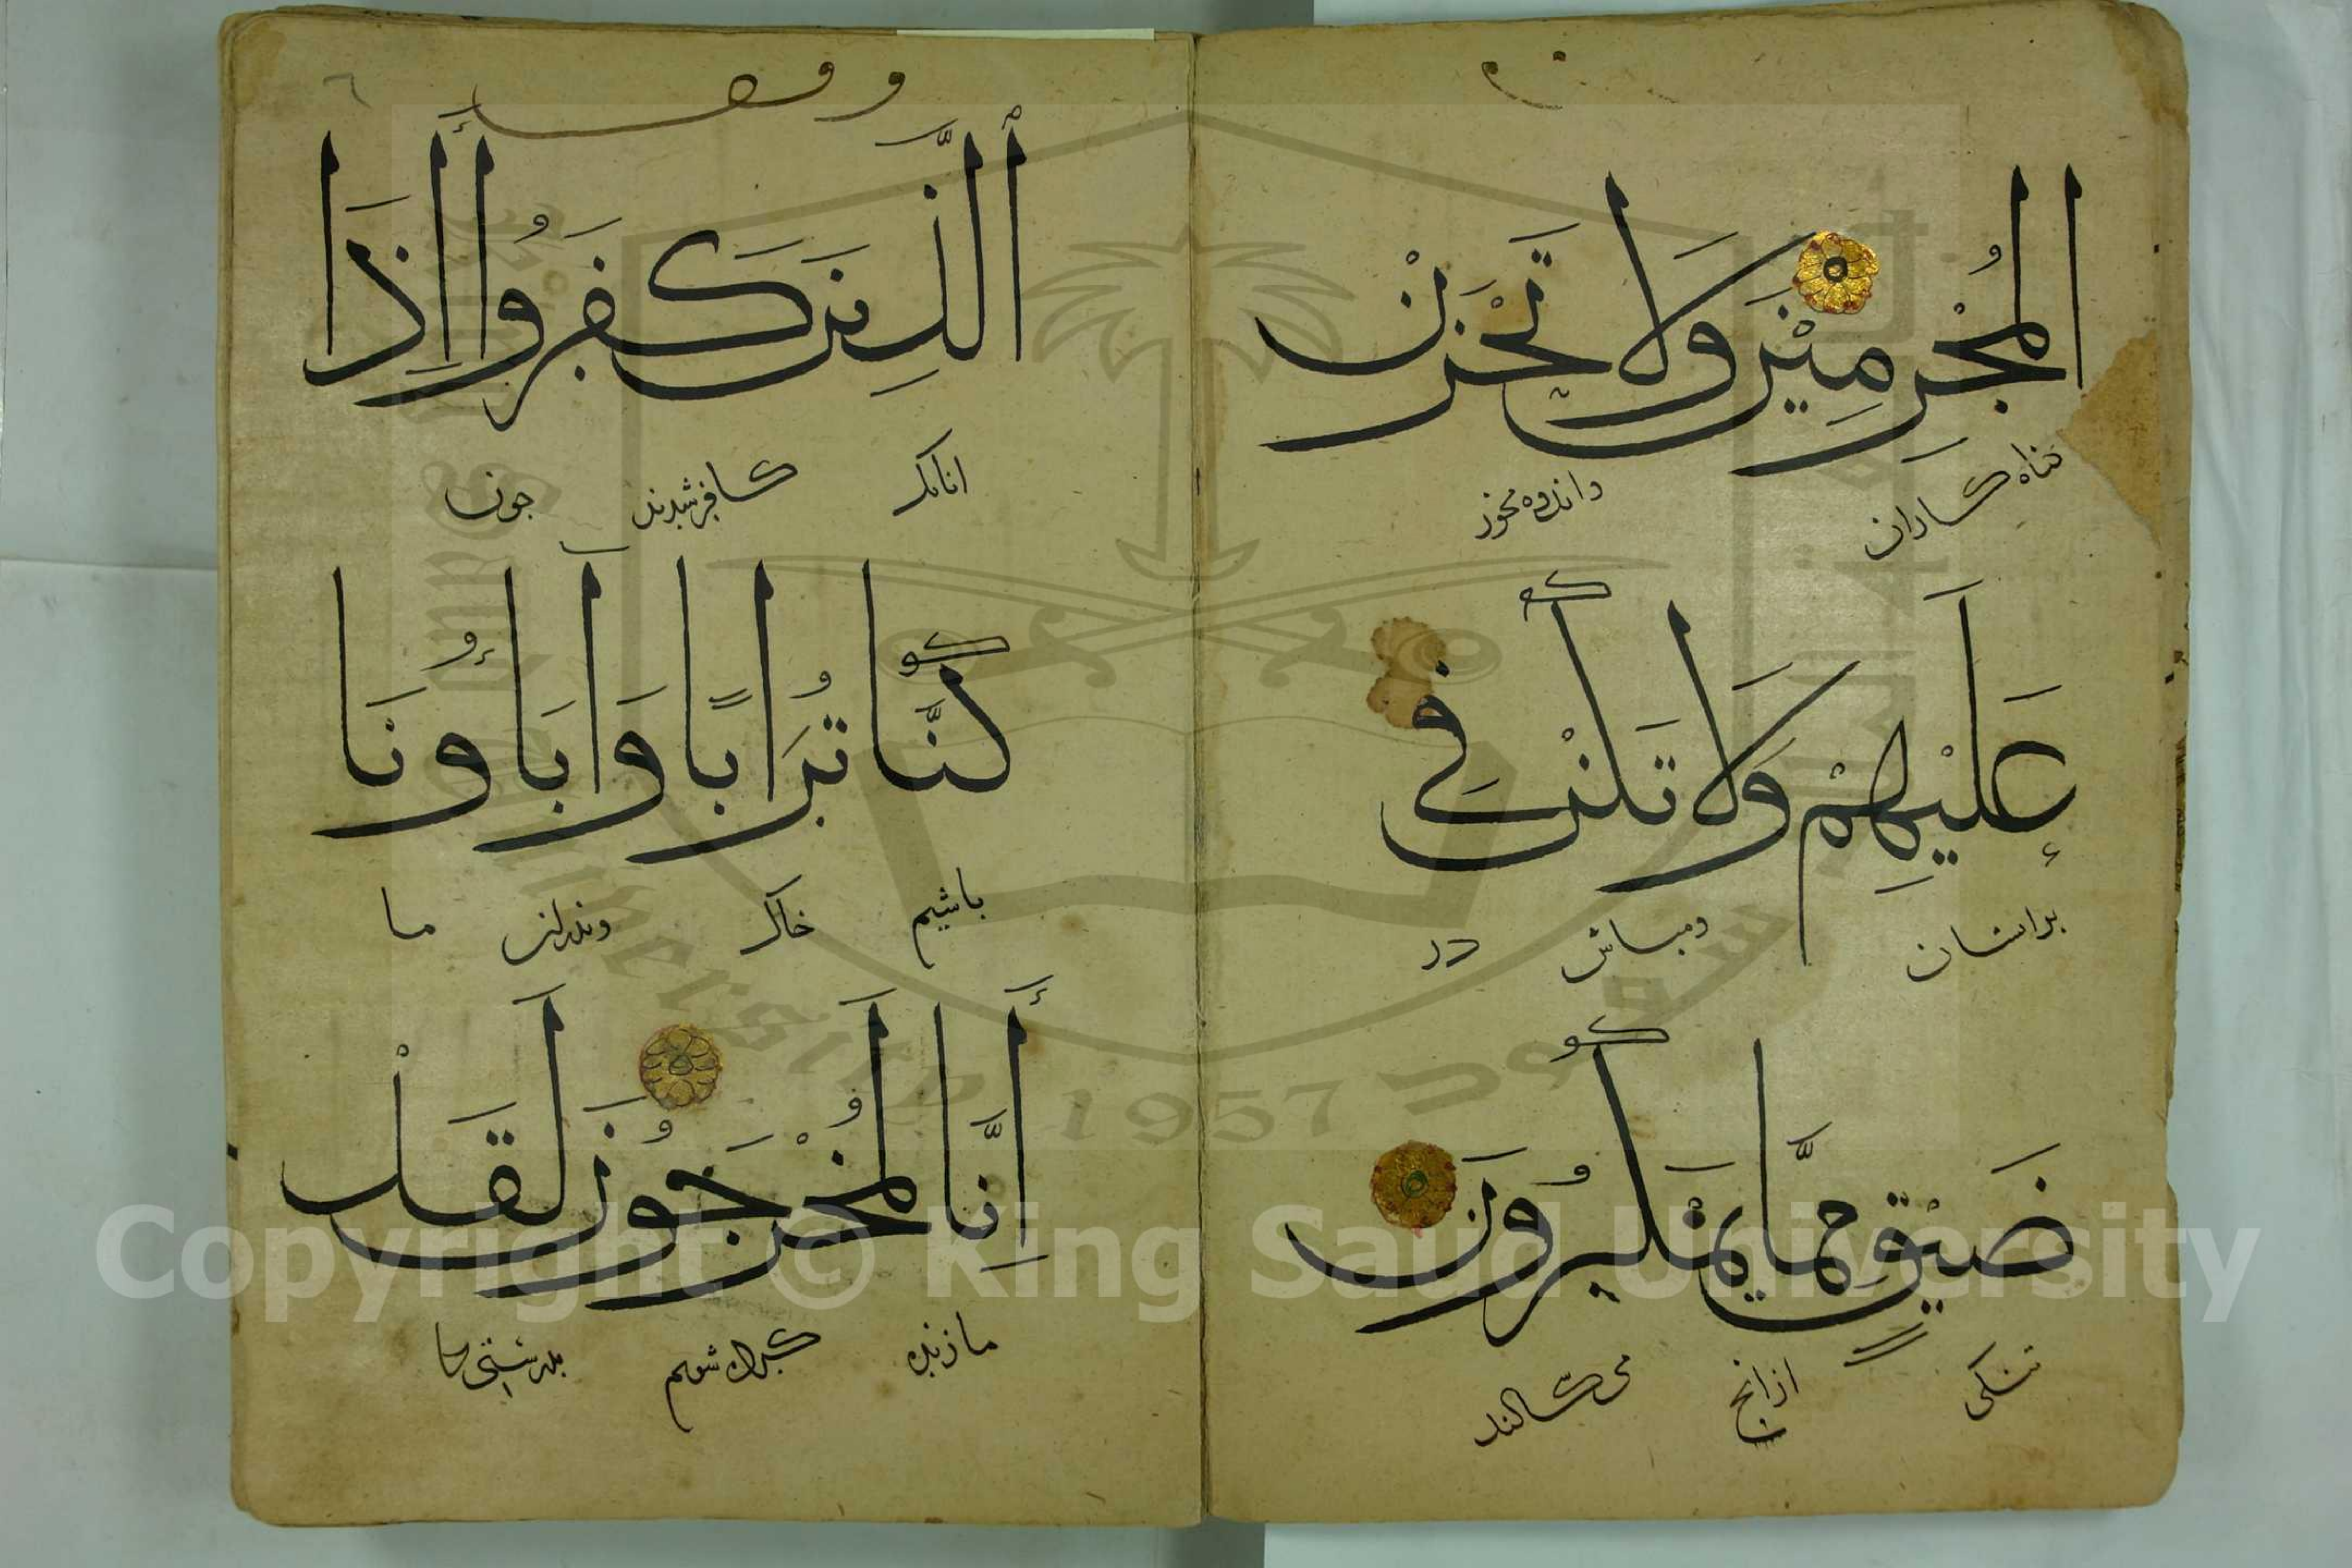 الْمُجْرِمِيْنَ وَلَا تَحْزَنْ
گناه کاران واندوه مخور
عَلَيْهِمْ وَلَا تَكُنْ فِي
برایشان ومباش در
ضَيْقٍ مِّمَّا يَمْكُرُونَ
تنکی ازانچ می سکالند
وقف
اَلَّذِينَ كَفَرُوا أَإِذَا
انانک کافر شدند چون
كُنَّا تُرَابًا وَآبَاؤُنَا
باشیم خاک وپدران ما
أَئِنَّا لَمُخْرَجُونَ لَقَدْ
ما زنده شویم بدرستی
Copyright © King Saud University
King Saud University
1957